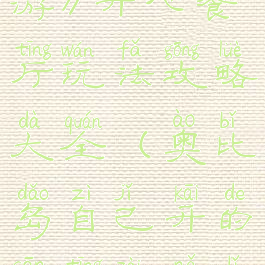 游戏开心餐
tīng wán fǎ gōng lüè
厅玩法攻略
dà quán ào bǐ
大全(奥比
dǎo zì jǐ kāi de
岛自己开的